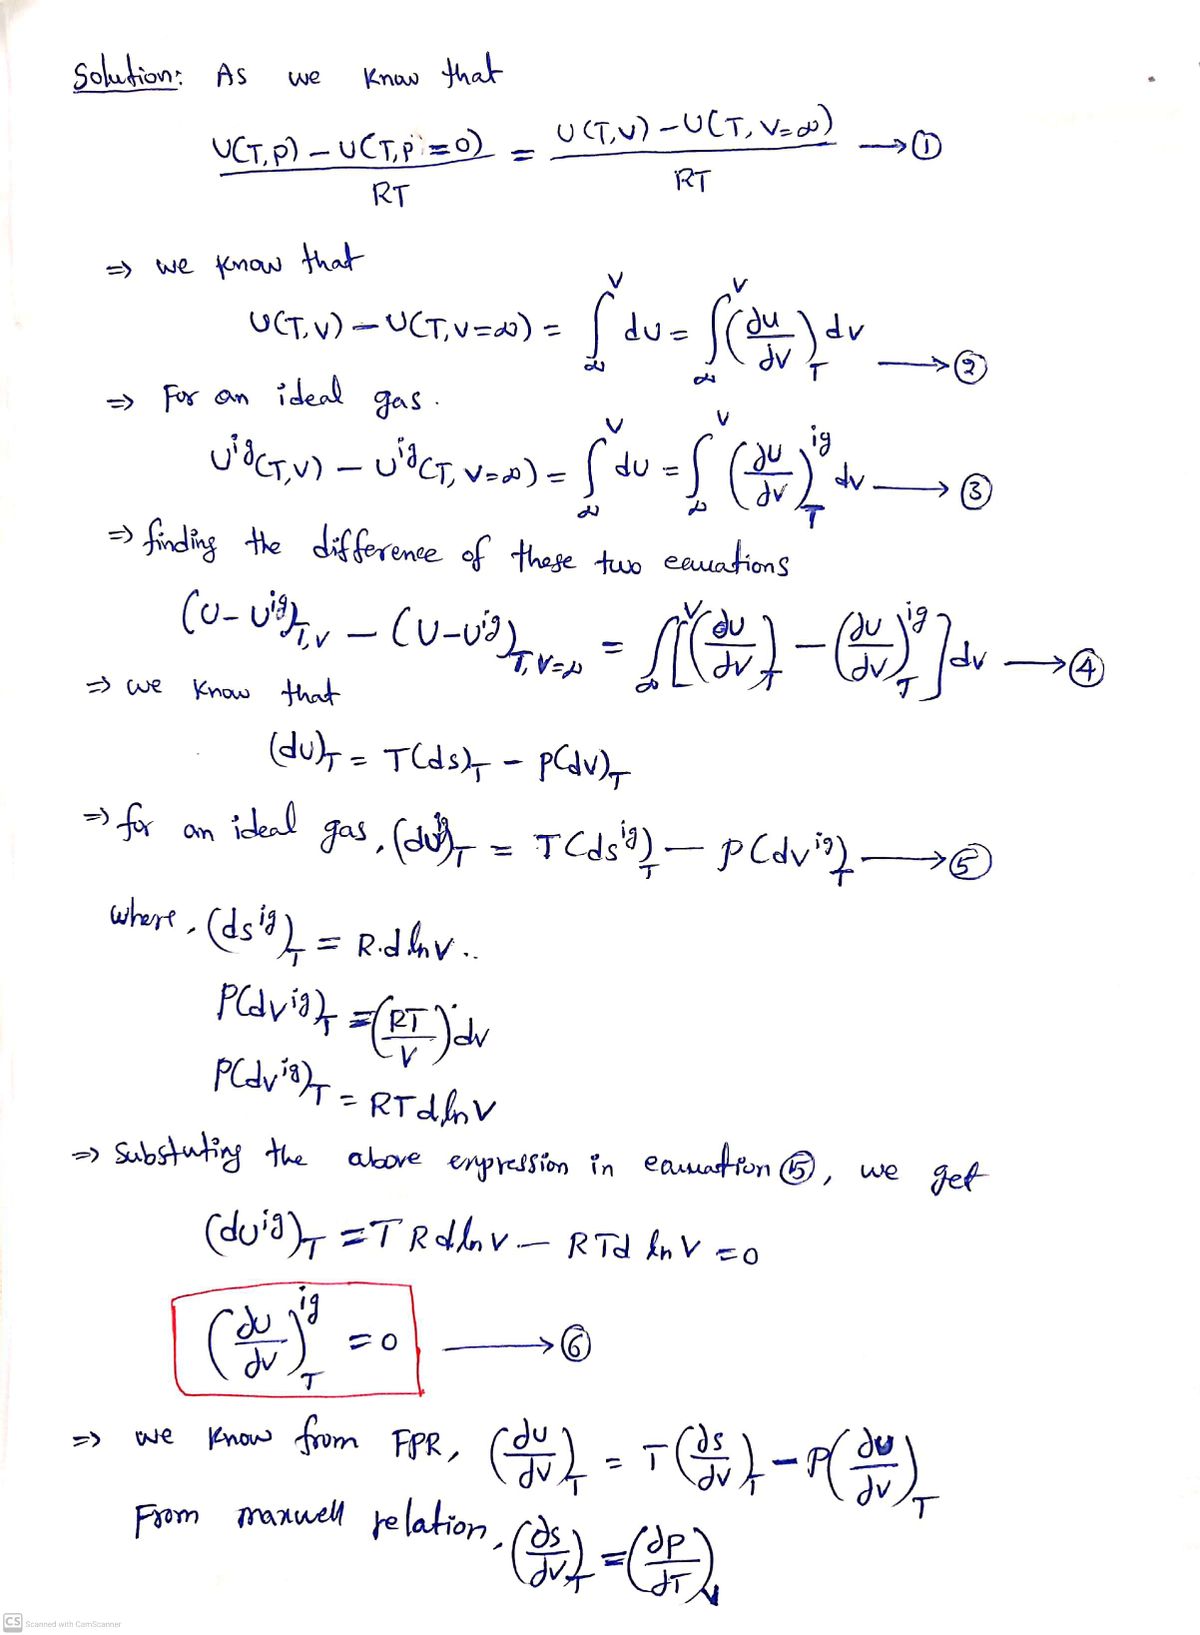 Solution: As we know that
U(T,P) - U(T,P=0) / RT = U(T,V) - U(T,V=∞) / RT → ①
⇒ we know that
U(T,V) - U(T,V=∞) = ∫_∞^V du = ∫_∞^V (∂u/∂v)_T dv → ②
⇒ For an ideal gas.
U^ig(T,V) - U^ig(T,V=∞) = ∫_∞^V du = ∫_∞^V (∂u/∂v)_T^ig dv → ③
⇒ finding the difference of these two equations
(U-U^ig)_T,V - (U-U^ig)_T,V=∞ = ∫_∞^V [(∂u/∂v)_T - (∂u/∂v)_T^ig] dv → ④
⇒ we know that
(du)_T = T(ds)_T - P(dv)_T
⇒ for an ideal gas, (du^ig)_T = T(ds^ig)_T - P(dv^ig)_T → ⑤
where, (ds^ig)_T = R.d ln v..
P(dv^ig)_T = (RT/V) dv
P(dv^ig)_T = RT d ln V
⇒ Substuting the above expression in equation ⑤, we get
(du^ig)_T = T R d ln V - R T d ln V = 0
(∂u/∂v)_T^ig = 0 → ⑥
⇒ we know from FPR, (∂u/∂v)_T = T(∂s/∂v)_T - P(∂u/∂v)_T
From maxwell relation, (∂s/∂v)_T = (∂p/∂T)_V
CS Scanned with CamScanner